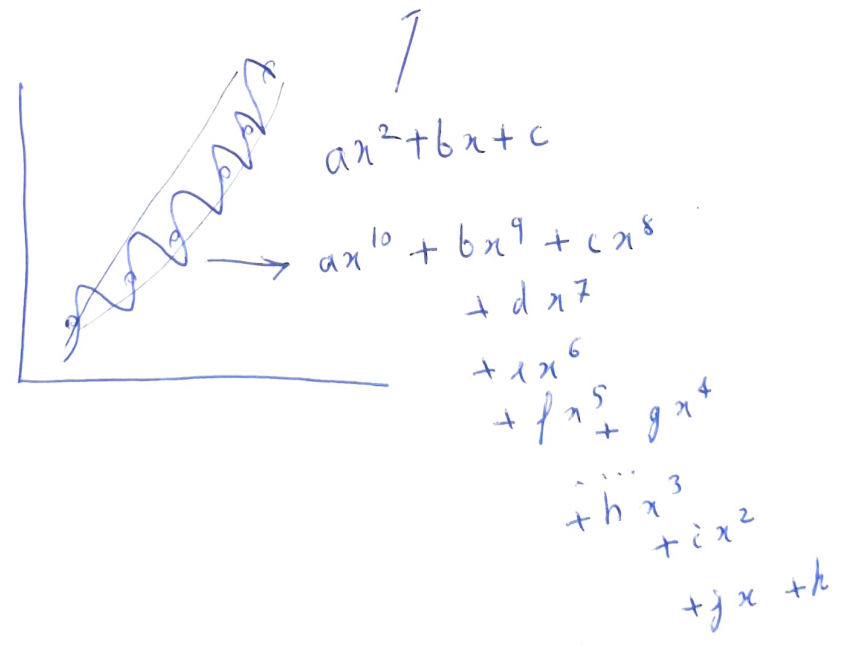 ax² + bx + c
ax¹⁰ + bx⁹ + cx⁸
+ dx⁷
+ ex⁶
+ fx⁵ + gx⁴
....
+ hx³
+ ix²
+ jx + k